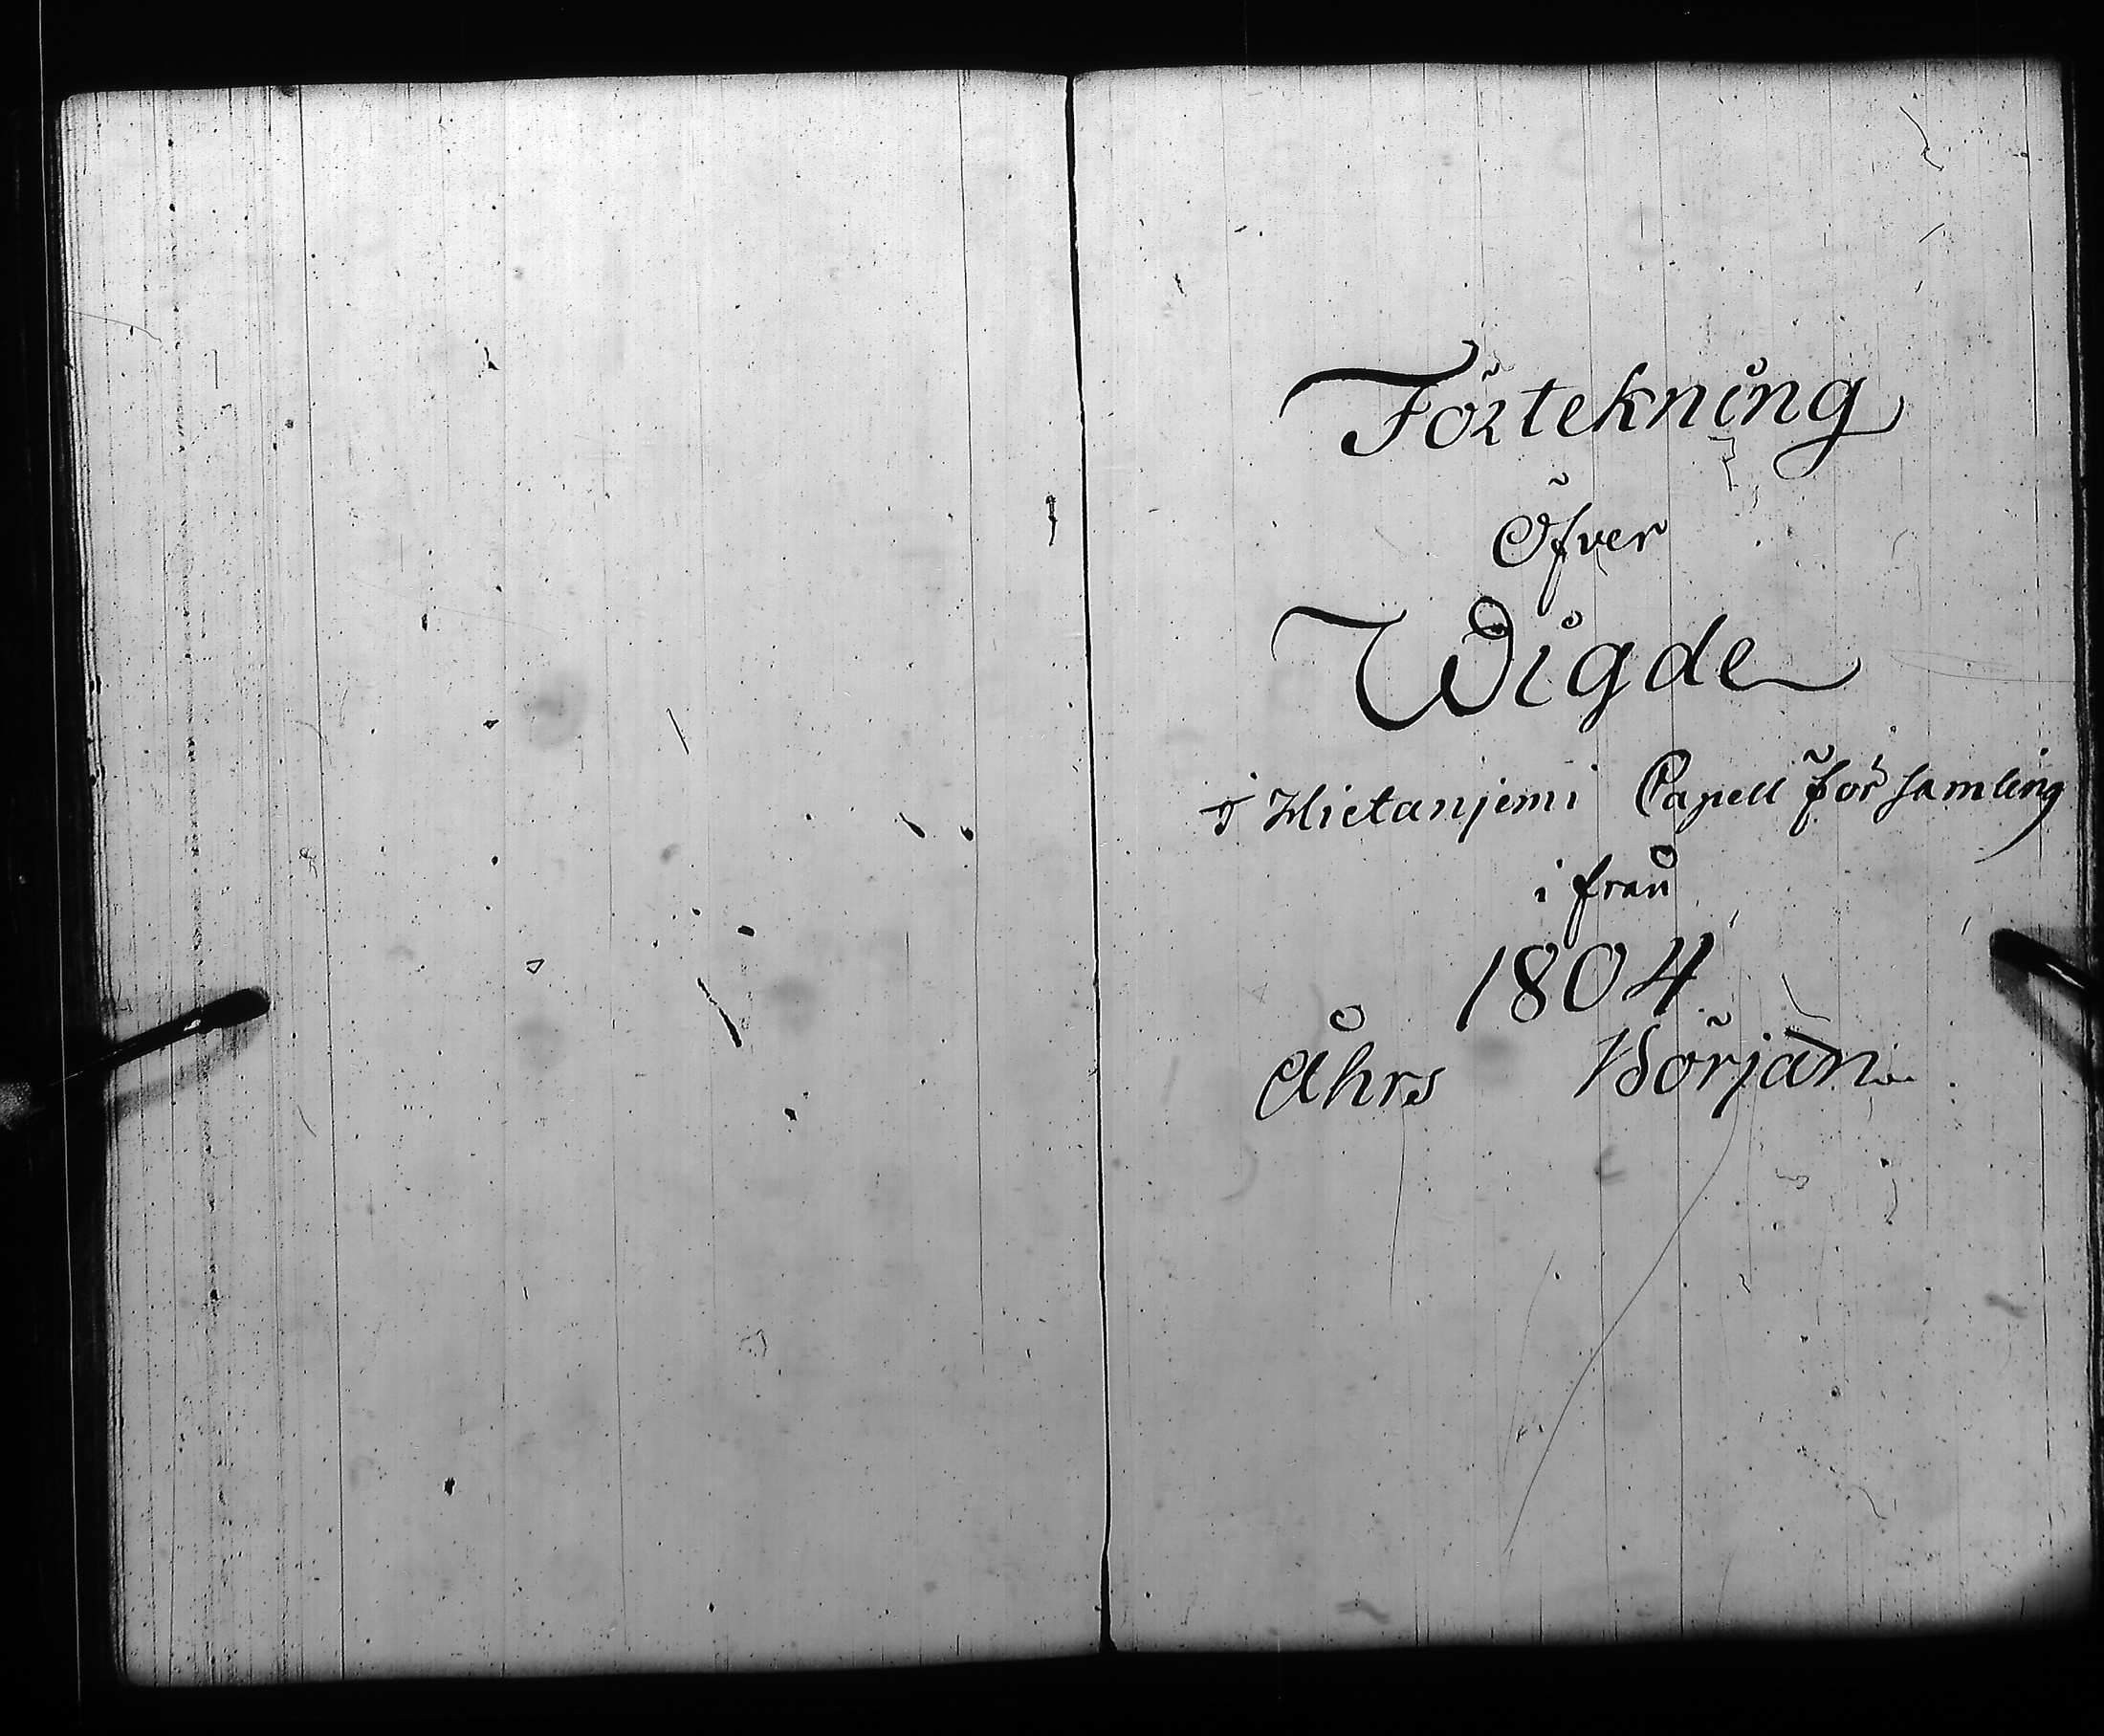 Förtekning
Öfver
Wigde
I Hietanjemi Capell församling
i från
1804
Åhrs Början